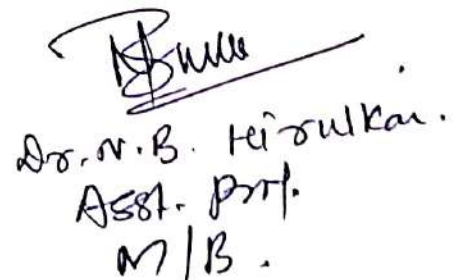 Dr. N. B. Hirulkar.
Asst. Prof.
M/B.